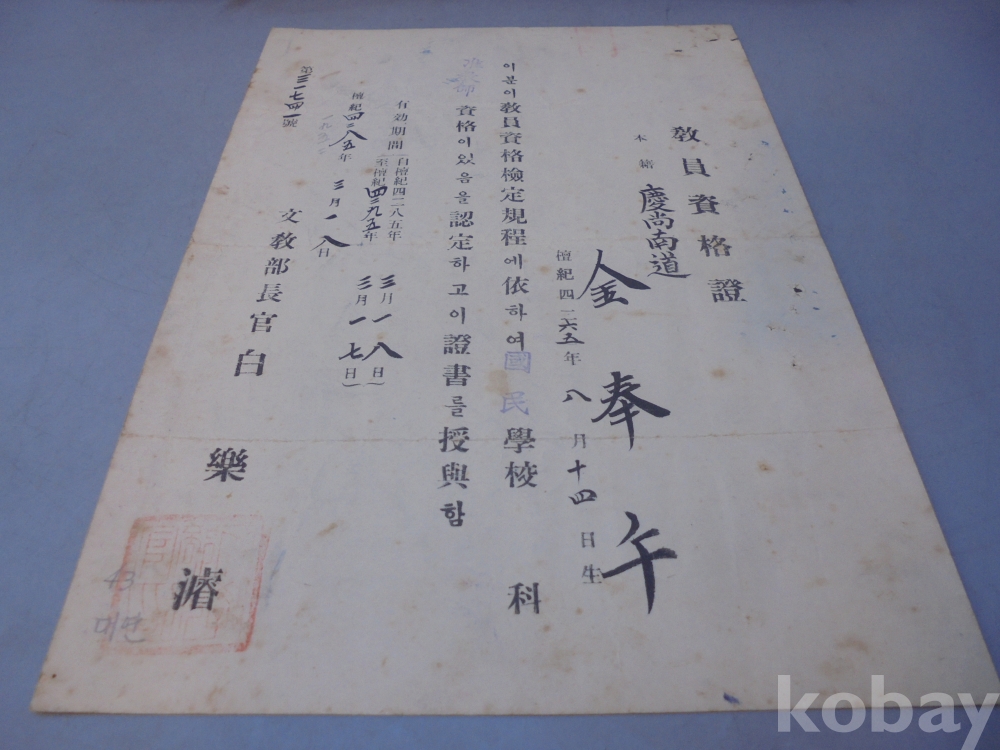 教員資格證
本籍 慶尚南道
金奉午
檀紀四二六五年八月十四日生
이분이敎員資格檢定規程에依하여國民學校 科
資格이있음을認定하고이證書를授與함
有効期間
自檀紀四二八五年三月一八日
至檀紀四二九五年三月一七日
檀紀四二八五年三月一八日
文敎部長官 白樂濬
第三一七四一號
43
미연
kobay